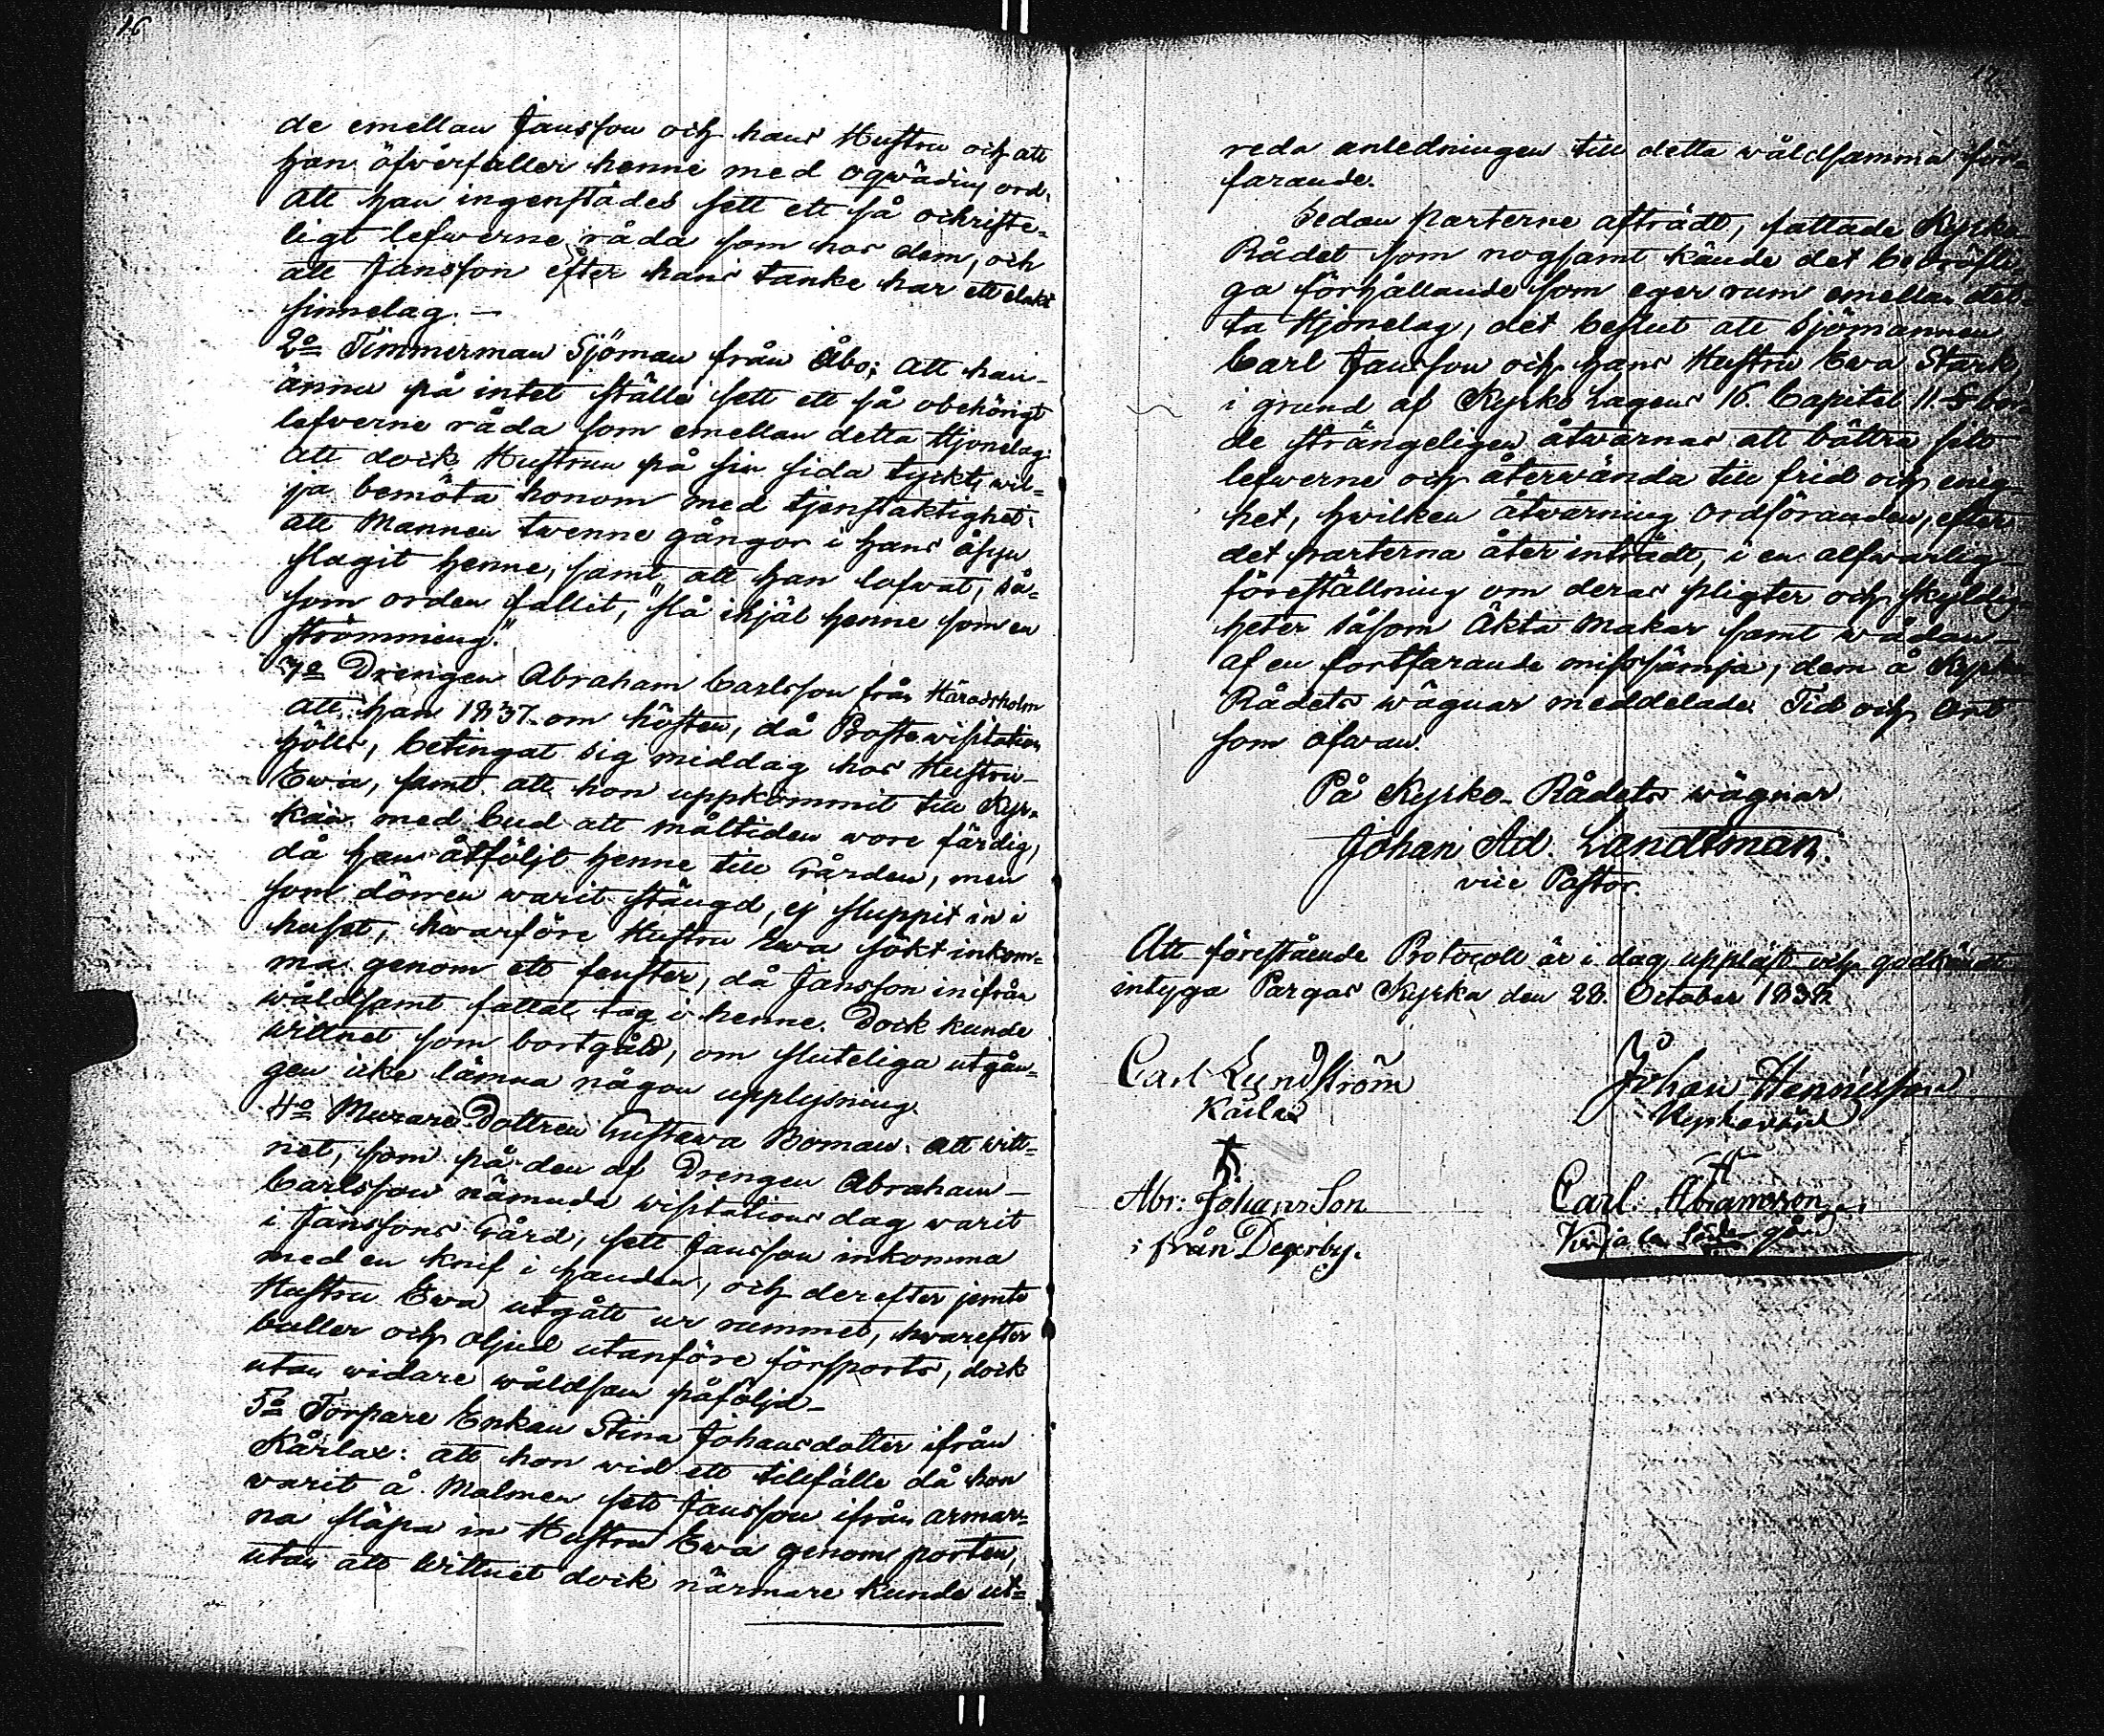 16
de emellan Jansson och hans Hustru och att
han öfverfaller henne med oqwädins ord,
att han ingenstädes sett ett så ochriste-
ligt lefwerne råda som hos dem, och
att Jansson efter hans tanke har ett elakt
sinnelag. –
2o Timmerman Sjöman från Åbo; att han
ännu på intet ställe sett ett så obehörigt
lefverne råda som emellan detta Hjonelag:
att dock Hustrun på sin sida tyckts wil-
ja bemöta honom med tjenstaktighet:
att Mannen twenne gångor i hans åsyn
slagit henne, samt att han lofwat, så-
som orden fallit, "slå ihjäl henne som en
strömming."
3o Drengen Abraham Carlsson från Häradsholm
att han 1837 om hösten, då Prostewisitation
hölls, betingat sig middag hos Hustru
Ewa, samt att hon uppkommit till Kyr-
kan med bud att måltiden wore färdig,
då han åtföljt henne till Gården, men
som dörren warit stängd, ej sluppit in i
huset, hwarföre Hustru Ewa sökt inkom-
ma genom ett fenster, då Jansson inifrån
wåldsamt fattat tag i henne. Dock kunde
wittnet som bortgått, om sluteliga utgån-
gen icke lämna någon upplysning.
4o Murare Dottren Gustawa Boman: att witt-
net, som på den af Drengen Abraham
Carlsson nämnda wisitations dag warit
i Janssons Gård, sett Jansson inkomma
med en knif i handen, och derefter jemte
Hustru Ewa utgått ur rummet, hwarefter
buller och oljud utanföre försports, dock
utan widare wåldsam påföljd –
5o Torpare Enkan Stina Johansdotter ifrån
Kårlax: att hon wid ett tillfälle då hon
warit å Malmen sett Jansson ifrån armar-
na släpa in Hustru Ewa genom porten,
utan att Wittnet dock närmare kunde ut-
reda anledningen till detta wåldsamma för-
farande.
Sedan Parterne afträdt, fattade Kyrko
Rådet som nogsamt kände det bedröfli-
ga förhållande som eger rum emellan det-
ta Hjonelag, det beslut att Sjömannen
Carl Jansson och hans Hustru Ewa Stark
i grund af Kyrko Lagens 16 Capitel 11. § bor-
de strängeligen åtwarnas att bättra sitt
lefwerne och återwända till frid och enig-
het, hwilken åtwarning Ordföranden, efter
det parterna åter inträdt, i en alfwarlig
föreställning om deras pligter och skyldig-
heter såsom Äkta Makar samt wådan
af en fortfarande missämja, dem å Kyrko
Rådets wägnar meddelade. Tid och Ort
som ofwan.
På Kyrko-Rådets wägnar
Johan Ad. Landtman.
vice Pastor.
Att förestående Protocoll är i dag uppläst och godkändt
intyga Pargas Kyrka den 28. October 1838
Carl Lundström
Johan Hennicsson
Kyrkovärd
Abr: Johans Son
Carl: Abramsson
ifrån Dexerby.